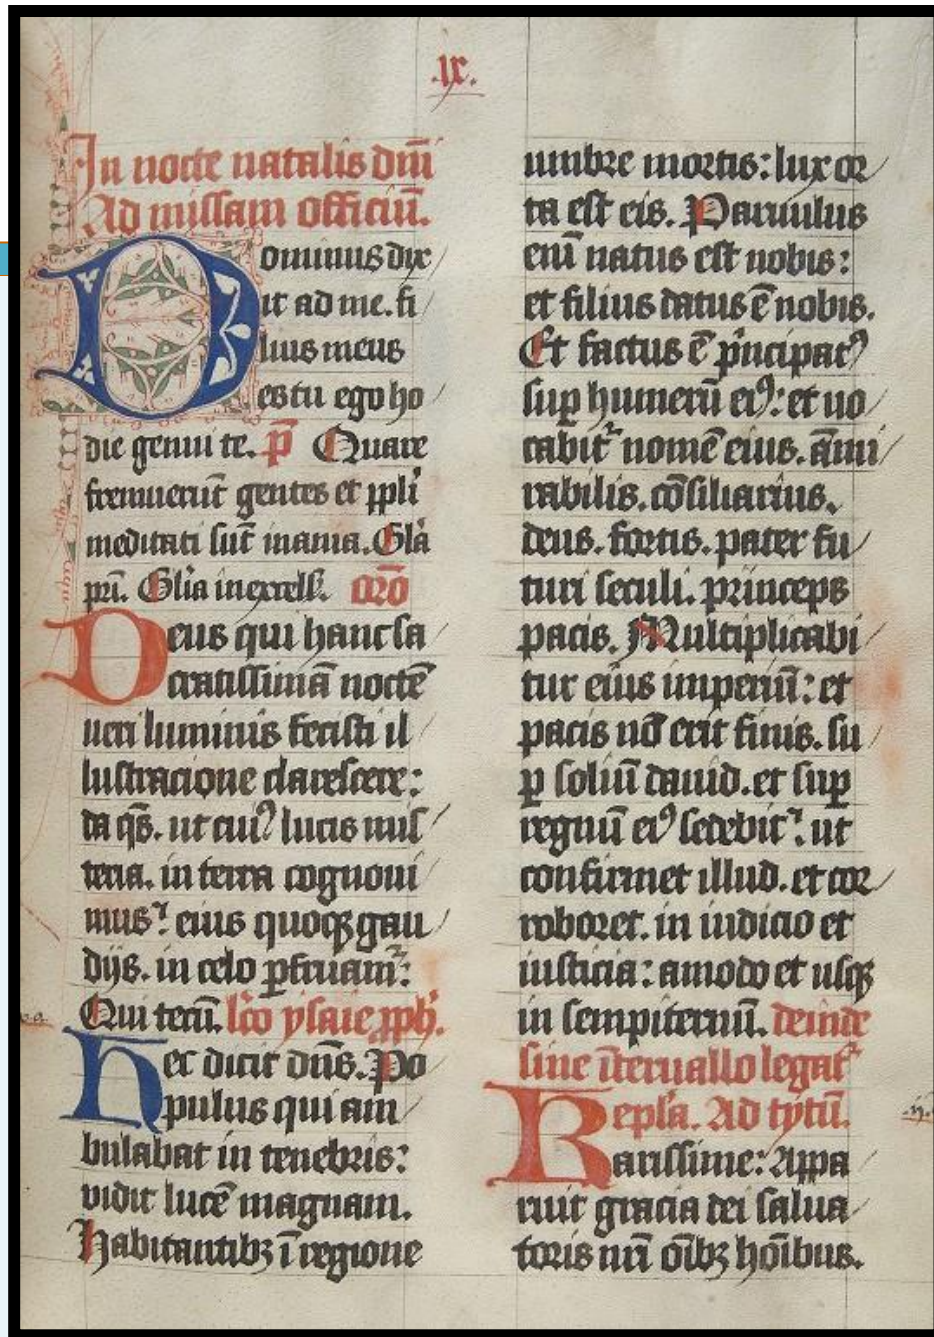 .ix.
In nocte natalis dn̄i
Ad missam officiū.
Dominus dix
it ad me. fi
lius meus
es tu ego ho
die genui te. p̄ Quare
fremuerūt gentes et ppl̄i
meditati sūt inania. Gl̄a
pr̄i. Gl̄ia in excels̄. or̄o
Deus qui hanc sa
cratissimā noctē
ueri luminis fecisti il
lustracione clarescere:
da qs̄. ut cuiꝰ lucis mis
teria. in terra cognoui
mus: eius quoqꝫ gau
dijs. in celo ꝑfruam᷑:
Qui tecū. lc̄o ysaie pph̄.
Hec dicit dn̄s. Po
pulus qui am
bulabat in tenebris:
vidit lucē magnam.
Habitantibꝫ ī regione
umbre mortis: lux or
ta est eis. Paruulus
enī natus est nobis:
et filius datus ē nobis.
Et factus ē p̄ncipatꝰ
suꝑ humerū eiꝰ: et uo
cabit᷑ nomē eius. am̄i
rabilis. cōsiliarius.
deus. fortis. pater fu
turi seculi. princeps
pacis. Multiplicabi
tur eius imperiū: et
pacis nō erit finis. su
ꝑ soliū dauid. et suꝑ
regnū eiꝰ sedebit᷑: ut
confirmet illud. et cor
roboret. in iudicio et
iusticia: amodo et usqꝫ
in sempiternū. deinde
sine īteruallo legat᷑
epl̄a. Ad tytū.
Karissime: Appa
ruit gracia dei salua
toris nr̄i oīb̄ꝫ hōībus.